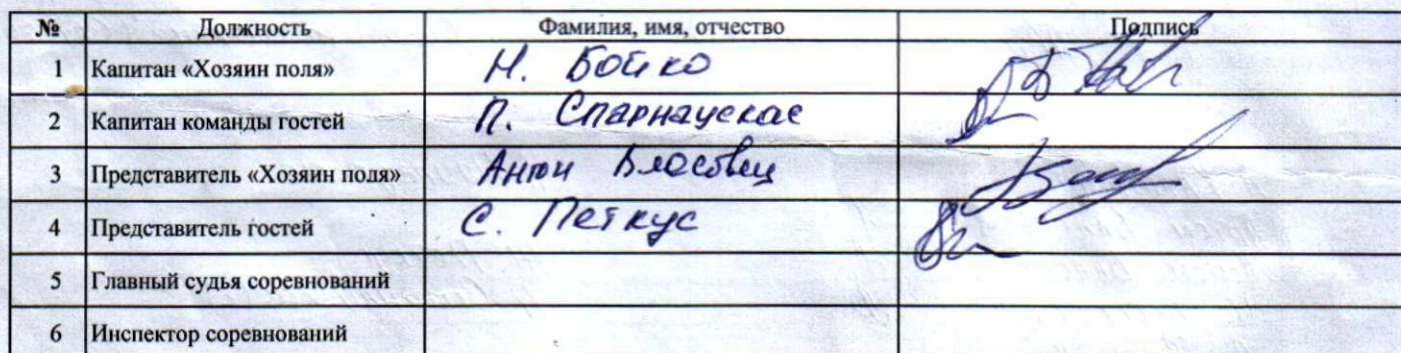 № Должность Фамилия, имя, отчество Подпись
1 Капитан «Хозяин поля» Н. Бойко
2 Капитан команды гостей П. Спарнаускас
3 Представитель «Хозяин поля» Антон
4 Представитель гостей С. Петкус
5 Главный судья соревнований
6 Инспектор соревнований